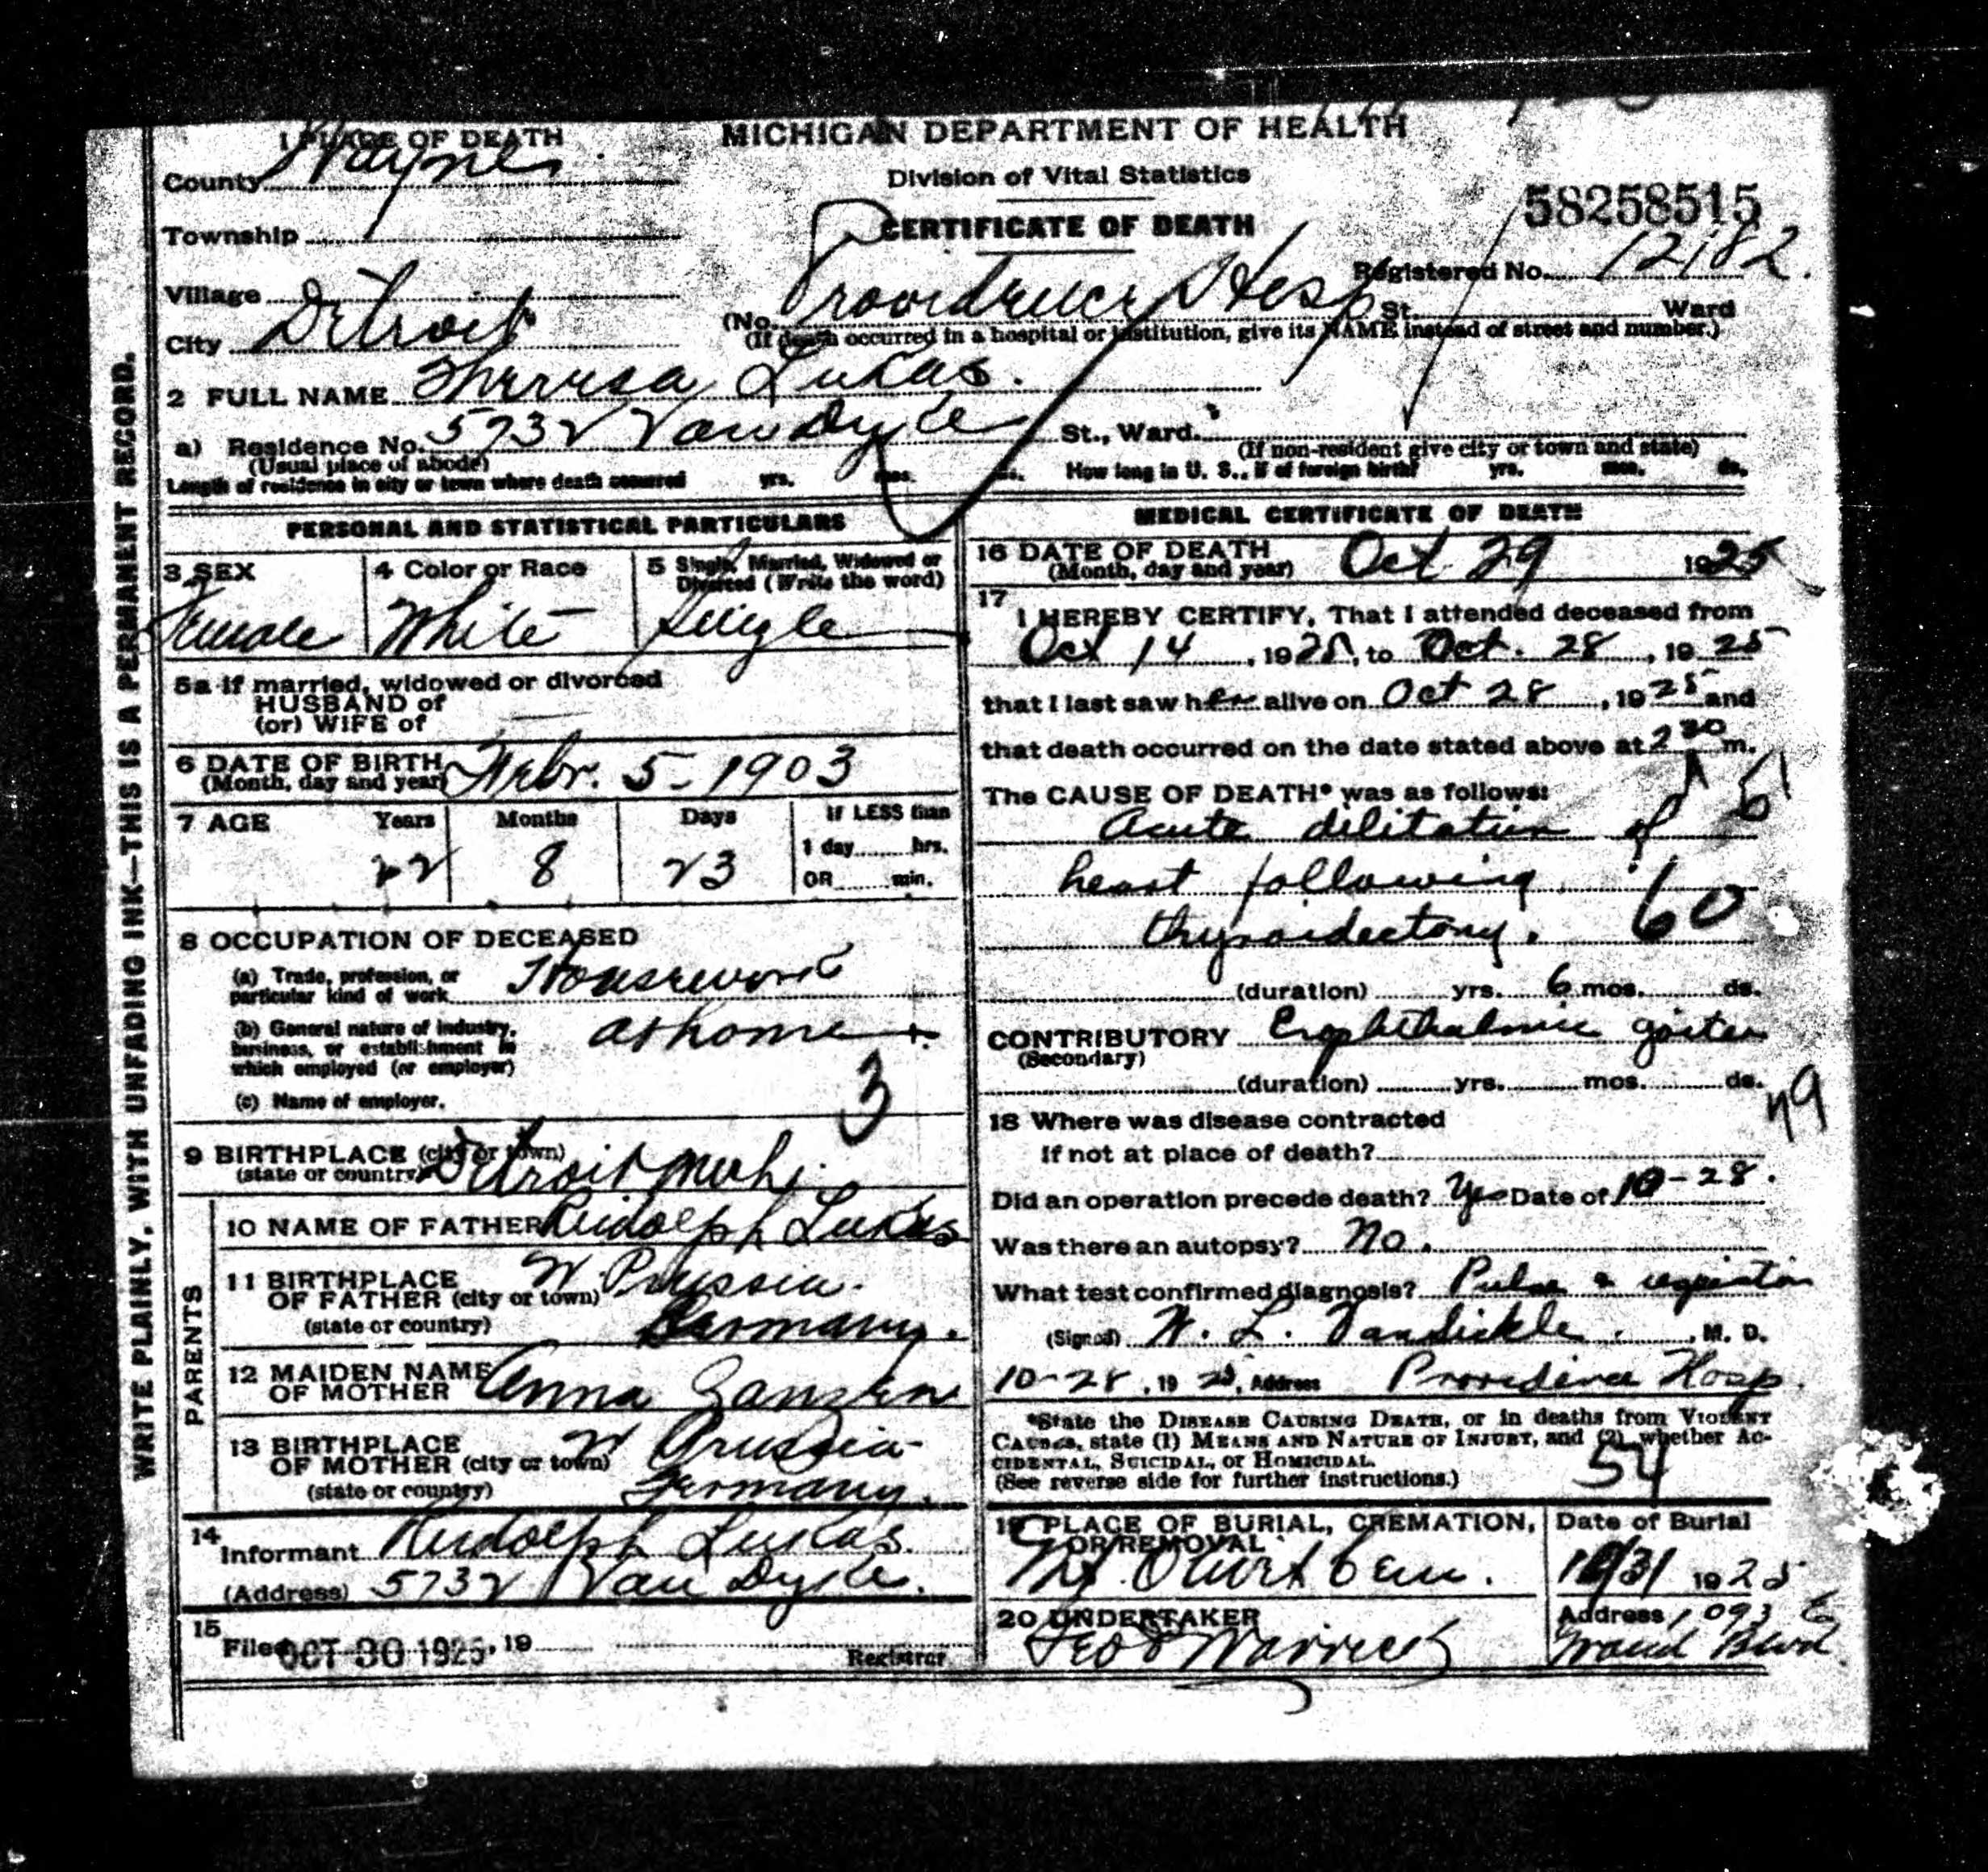 1 PLACE OF DEATH
County Wayne
Township
Village
City Detroit
MICHIGAN DEPARTMENT OF HEALTH
Division of Vital Statistics
CERTIFICATE OF DEATH
58258515
Registered No. 12182.
(No. Providence Hosp St. Ward
(If death occurred in a hospital or institution, give its NAME instead of street and number.)
2 FULL NAME Theresa Lukas.
a) Residence No. 5732 Van Dyke St., Ward.
(Usual place of abode)
(If non-resident give city or town and state)
Length of residence in city or town where death occurred yrs. mos. ds. How long in U. S., if of foreign birth? yrs. mos. ds.
WRITE PLAINLY, WITH UNFADING INK—THIS IS A PERMANENT RECORD.
PERSONAL AND STATISTICAL PARTICULARS
3 SEX
Female
4 Color or Race
White
5 Single, Married, Widowed or
Divorced (Write the word)
Single
5a if married, widowed or divorced
HUSBAND of
(or) WIFE of
6 DATE OF BIRTH
(Month, day and year) Febr. 5 - 1903
7 AGE Years Months Days If LESS than
22 8 23
1 day hrs.
OR min.
8 OCCUPATION OF DECEASED
(a) Trade, profession, or
particular kind of work Housework
(b) General nature of industry,
business, or establishment in
which employed (or employer)
at home
(c) Name of employer.
3
9 BIRTHPLACE (city or town)
(state or country) Detroit Mich.
PARENTS
10 NAME OF FATHER Rudolph Lukas
11 BIRTHPLACE
OF FATHER (city or town) W. Prussia.
(state or country) Germany.
12 MAIDEN NAME
OF MOTHER Anna Zanzen
13 BIRTHPLACE
OF MOTHER (city or town) W Prussia
(state or country) Germany.
14
Informant Rudolph Lukas.
(Address) 5732 Van Dyke.
15
Filed OCT 30 1925, 19
Registrar
MEDICAL CERTIFICATE OF DEATH
16 DATE OF DEATH
(Month, day and year) Oct. 29 1925
17
I HEREBY CERTIFY, That I attended deceased from
Oct 14, 1925, to Oct. 28, 1925
that I last saw her alive on Oct 28, 1925 and
that death occurred on the date stated above at 2 30 m.
The CAUSE OF DEATH* was as follows:
Acute dilitation of
heart following
thyroidectomy. 60
(duration) yrs. 6 mos. ds.
CONTRIBUTORY Exophthalmic goiter
(Secondary)
(duration) yrs. mos. ds.
18 Where was disease contracted
If not at place of death?
Did an operation precede death? Yes Date of 10-28.
Was there an autopsy? No.
What test confirmed diagnosis? Pulse &
(Signed) W. L. VanSickle, M. D.
10-28, 1925, Address Providence Hosp.
*State the DISEASE CAUSING DEATH, or in deaths from VIOLENT
CAUSES, state (1) MEANS AND NATURE OF INJURY, and (2) whether AC-
CIDENTAL, SUICIDAL, or HOMICIDAL.
(See reverse side for further instructions.) 54
19 PLACE OF BURIAL, CREMATION,
OR REMOVAL
Mt. Olivet Cem.
Date of Burial
10/31 1925
20 UNDERTAKER
Address 1093 E
Grand Blvd